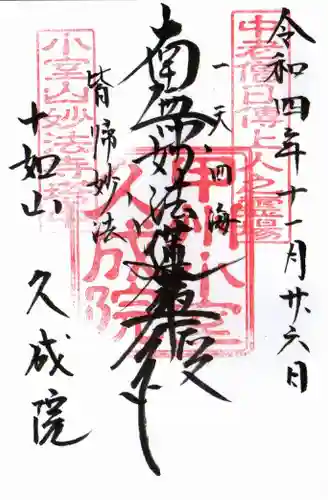 令和四年十一月廿六日
中老僧日傳上人之霊場
一天四海
南無妙法蓮華経
皆帰妙法
甲州小室
久成院
小室山妙法寺塔頭
十如山 久成院